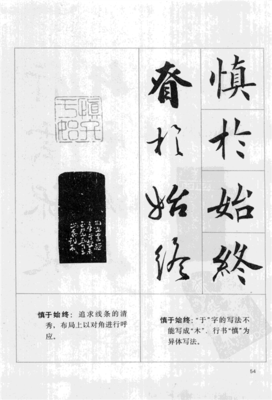 慎於始終
眘於始終
慎于始终：“于”字的写法不
能写成“木”，行书“慎”为
异体写法。
慎于始终：追求线条的清
秀，布局上以对角进行呼
应。
54